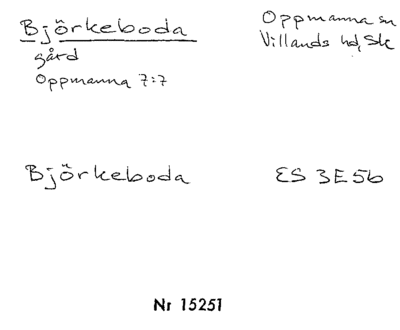 Björkeboda
gård
Oppmanna 7:7
Oppmanna sn
Villands hd, Sk
Björkeboda
ES 3E5b
Nr 15251